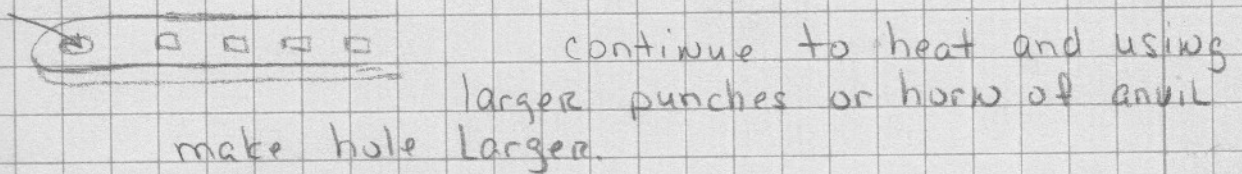 continue to heat and using
larger punches or horn of anvil
make hole larger.